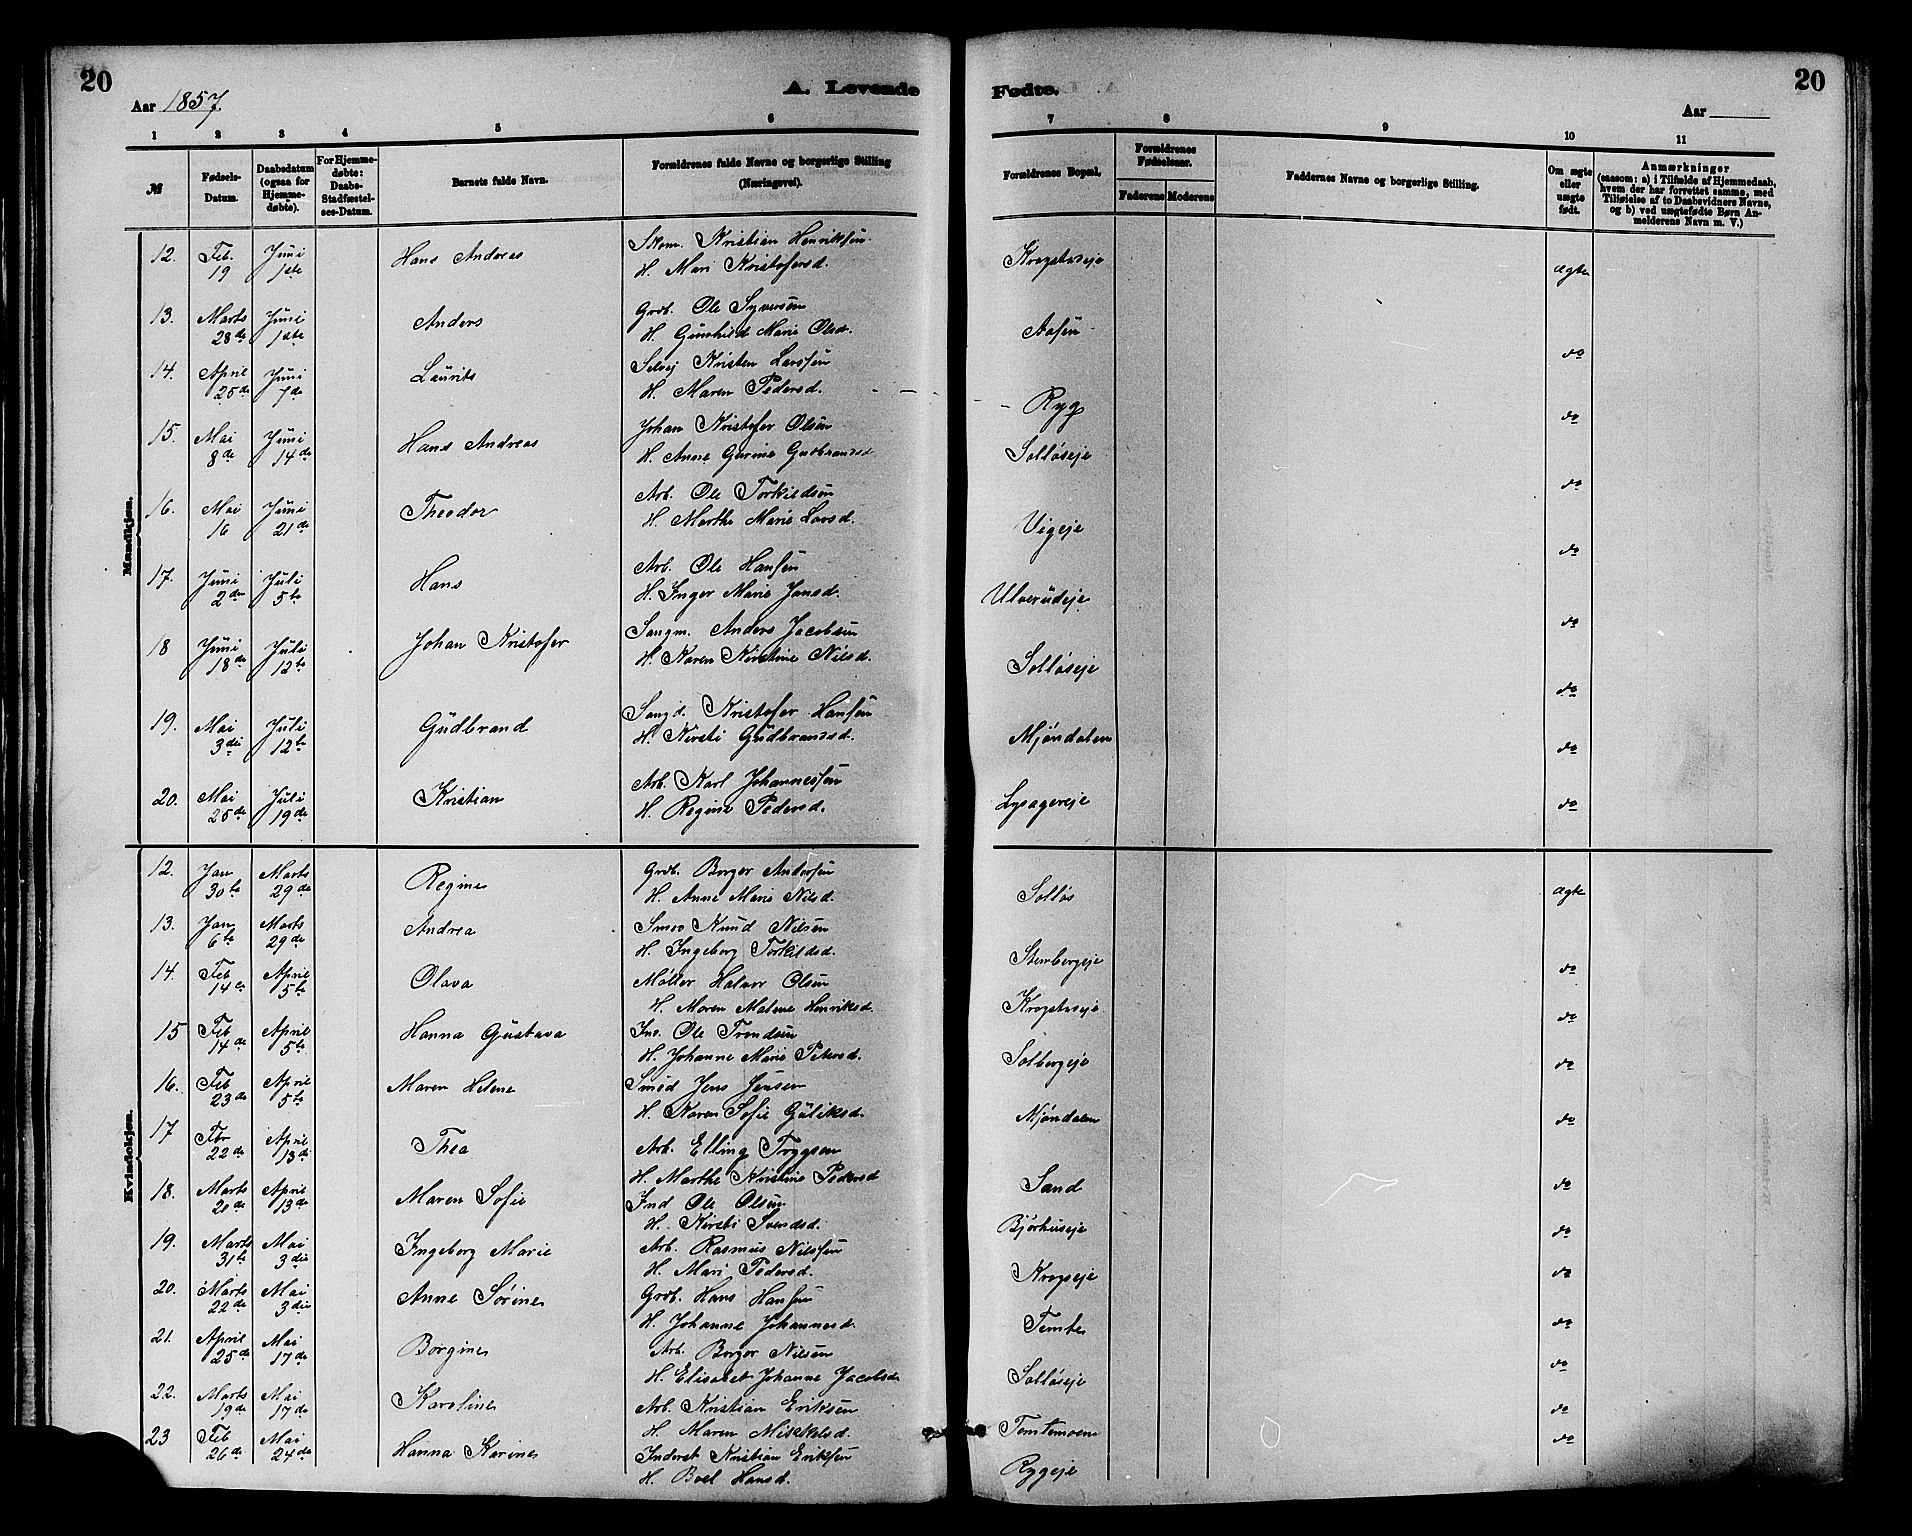 20
Aar 1857.
A. Levende
Fødte.
Aar
20
1 2 3 4 5 6 7 8 9 10 11
№
Fødsels-Datum.
Daabsdatum (ogsaa for Hjemme-døbte).
For Hjemme-døbte: Daabs-Stadfæstel-ses-Datum.
Barnets fulde Navn.
Forældrenes fulde Navne og borgerlige Stilling (Næringsvei).
Forældrenes Bopæl.
Forældrenes Fødselsaar.
Faderens Moderens
Faddernes Navne og borgerlige Stilling.
Om ægte eller uægte født.
Anmærkninger
(saasom: a) i Tilfælde af Hjemmedaab, hvem der har forrettet samme, med Tilføielse af to Daabsvidners Navne, og b) ved uægtefødte Børn An-melderens Navn m. V.)
Mandkjøn.
12. Feb. 19 Juni 1ste Hans Andreas Skom. Kristian Henriksen Krogstadeje ægte
H. Mari Kristofersd.
13. Marts 28de Juni 1ste Anders Grb. Ole Syversen Aasen do
H. Gunhild Marie Olsd.
14. April 25de Juni 7de Laurits Selvej Kristen Larssen Ryg do
H. Maren Pedersd.
15. Mai 8de Juni 14de Hans Andreas Johan Kristofer Olsen Solløseje do
H. Anne Gurine Gudbrandsd
16. Mai 16 Juni 21de Theodor Arb. Ole Torkildsen Vigeje do
H. Marthe Marie Larsd.
17. Juni 2den Juli 5te Hans Arb. Ole Hansen Ulverudeje do
H. Inger Marie Jansd.
18 Juni 18de Juli 12te Johan Kristofer Saugm. Anders Jacobsen Solløseje do
H. Karen Kirstine Nilsd.
19. Mai 3die Juli 12te Gudbrand Saugd. Kristofer Hansen Mjøndalen do
H. Kirsti Gudbrandsd.
20. Mai 25de Juli 19de Kristian Arb. Karl Johannessen Lysagereje do
H. Regine Pedersd.
Kvindekjøn.
12. Jan 30te Marts 29de Regine Grb. Borger Andersen Solløs ægte
H. Anne Marie Nilsd.
13. Jan 6te Marts 29de Andrea Smed Knud Nilsen Stenbergeje do
H. Ingeborg Torkildsd.
14. Feb 14de April 5te Olava Møller Halvor Olsen Krogstadeje do
H. Maren Malene Henriksd.
15 Feb 14de April 5te Hanna Gustava Ind. Ole Trondsen Solbergeje do
H. Johanne Marie Petersd.
16. Feb 23de April 5te Maren Helene Smed Jens Jensen Mjøndalen do
H. Karen Sofie Guliksd.
17 Febr 22de April 13de Thea Arb. Elling Trygsen Sand do
H. Marthe Kirstine Pedersd
18. Marts 20de April 13de Maren Sofie Ind Ole Olsen Bjørhuseje do
H. Kirsti Svendsd.
19. Marts 31te Mai 3die Ingeborg Marie Arb. Rasmus Nilssen Krogseje do
H. Mari Pedersd.
20. Marts 22de Mai 3die Anne Sørine Grb. Hans Hansen Temte do
H. Johanne Johannesd.
21. April 25de Mai 17de Borgine Arb. Borger Nilsen Solløseje do
H. Elisabet Johanne Jacobsd
22. Marts 19de Mai 17de Karoline Arb. Kristian Eriksen Temtemoen do
H. Maren Mikkelsd.
23 Feb 26de Mai 24de Hanna Karine Inderst Kristian Eriksen Rygeje do
H. Boel Hansd.